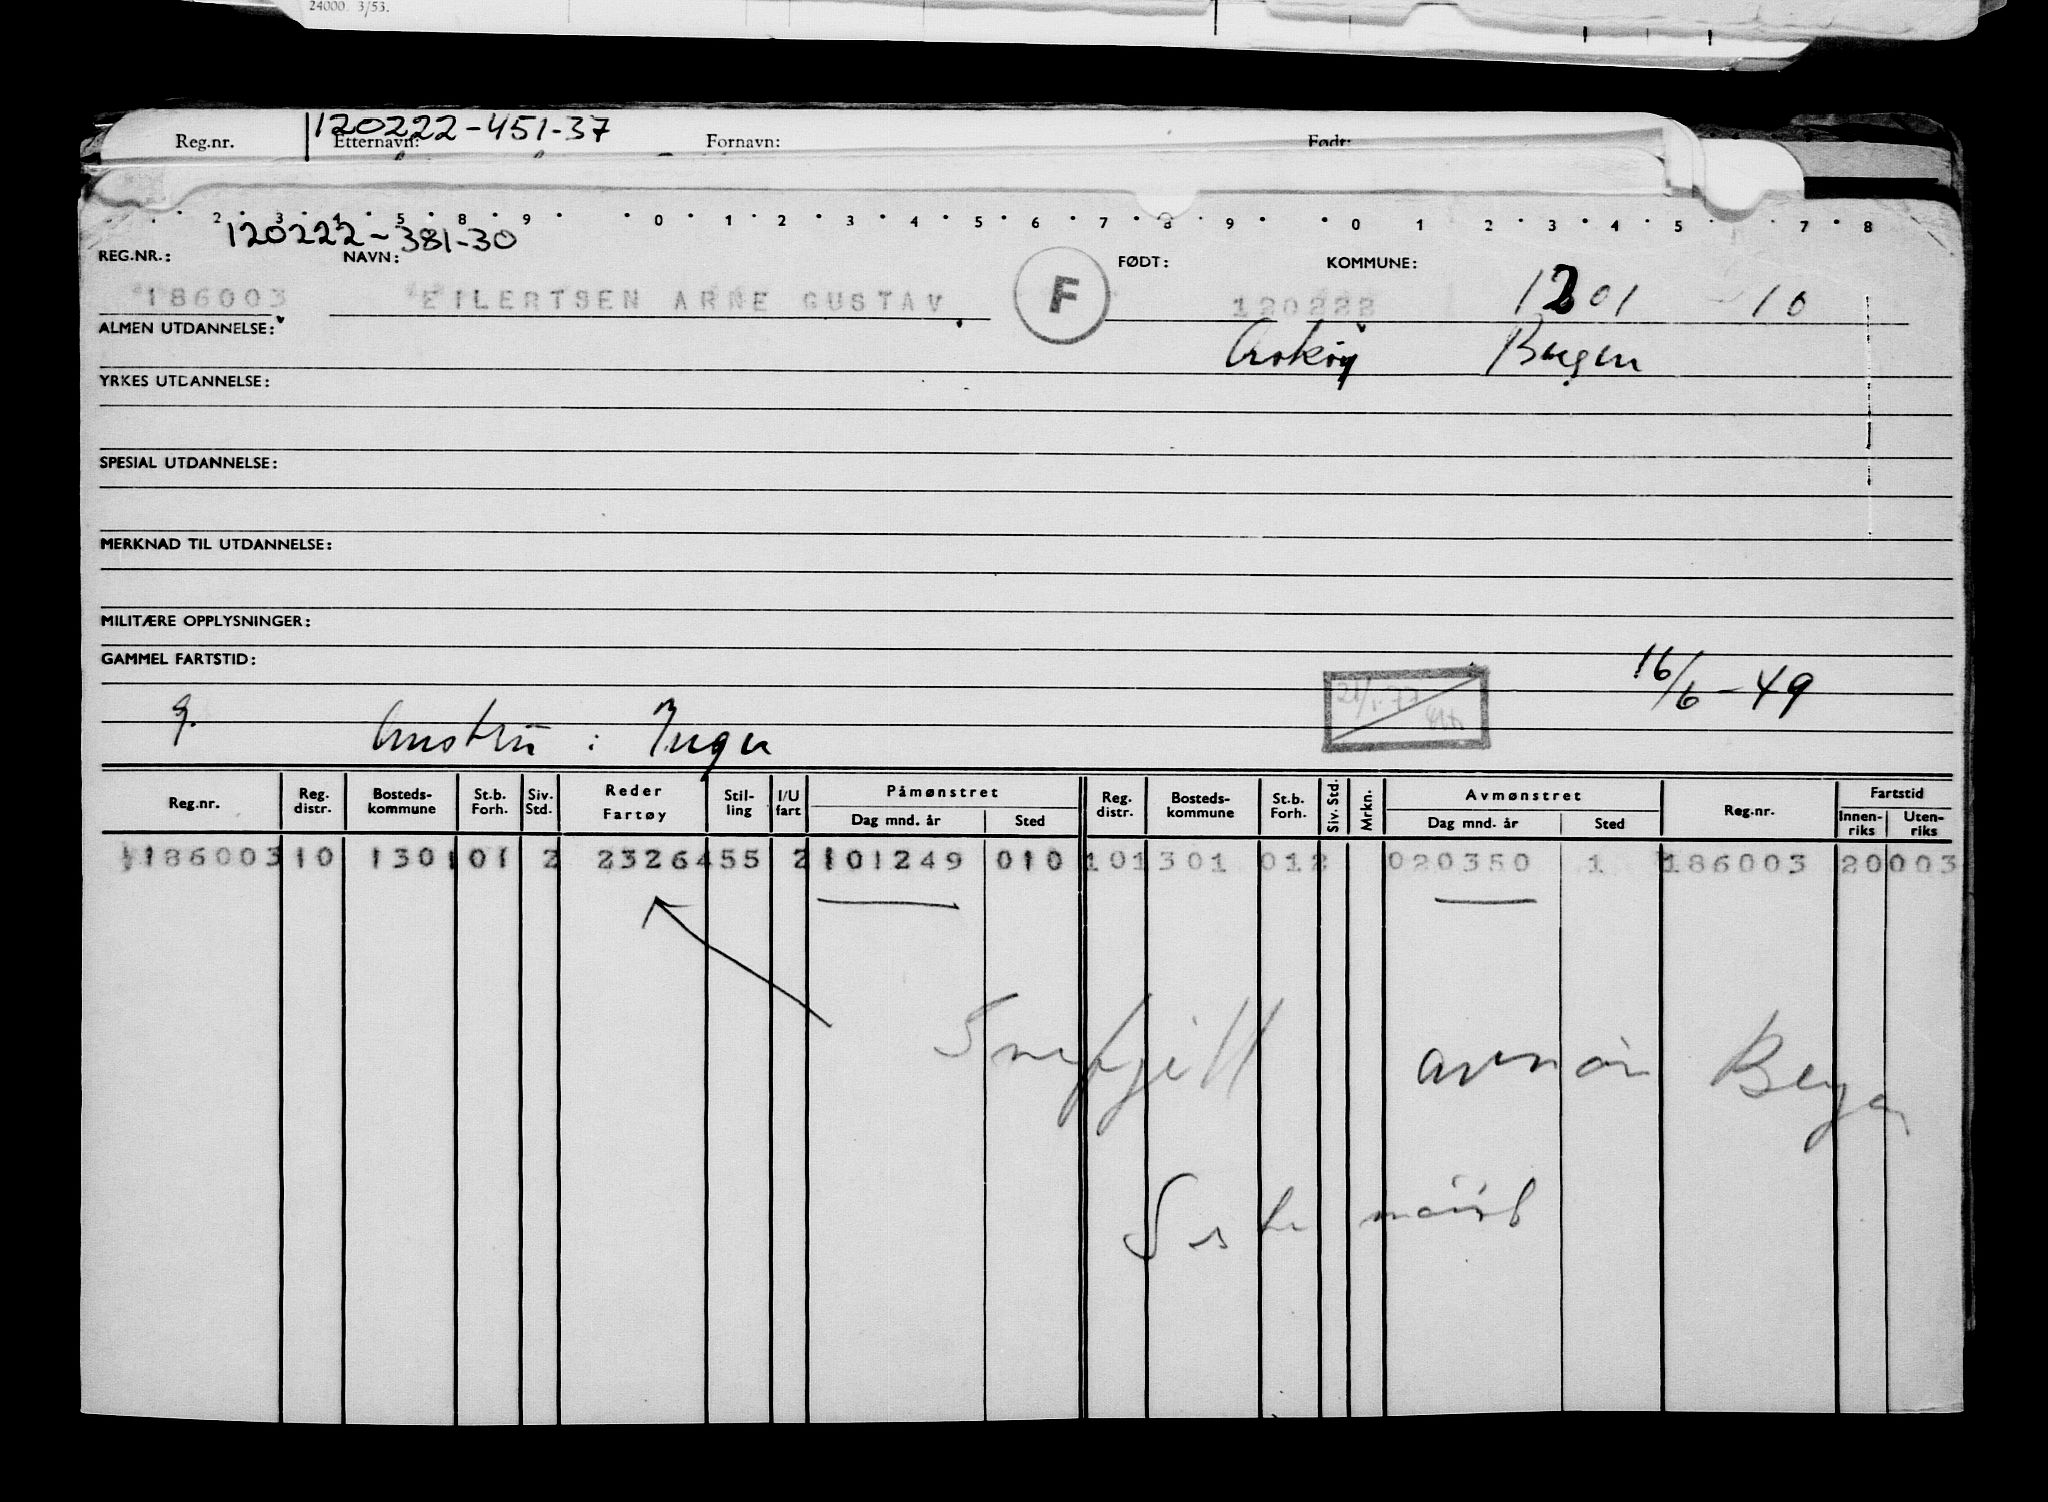 24000. 3/53.
120222-451-37
Reg.nr. Etternavn: Fornavn: Født:
2 3 4 5 8 9 0 1 2 3 4 5 6 7 8 9 0 1 2 3 4 5 7 8
120222-381-30
REG.NR.: NAVN: FØDT: KOMMUNE:
186003 EILERTSEN ARNE GUSTAV F 120222 1201 10
ALMEN UTDANNELSE: Askøy Bergen
YRKES UTDANNELSE:
SPESIAL UTDANNELSE:
MERKNAD TIL UTDANNELSE:
MILITÆRE OPPLYSNINGER:
GAMMEL FARTSTID: 16/6-49
Reg.nr. Reg. distr. Bosteds-kommune St.b. Forh. Siv. Std. Reder Fartøy Stil-ling I/U fart Påmønstret Dag mnd. år Sted Reg. distr. Bosteds-kommune St.b. Forh. Siv. Std. Mrkn. Avmønstret Dag mnd. år Sted Reg.nr. Fartstid Innen-riks Uten-riks
186003 10 1301 01 2 23264 55 2 101249 010 10 1301 012 020350 1 186003 20003
Snefjell avmøn Bergen
Siste mønst